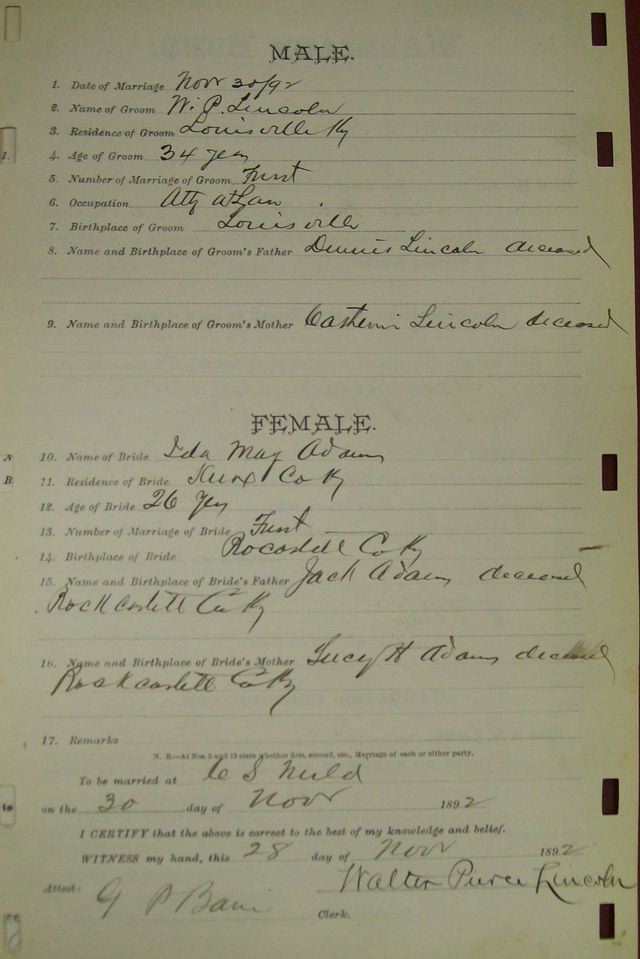 MALE.
1. Date of Marriage Nov 30/92
2. Name of Groom W. P. Lincoln
3. Residence of Groom Louisville Ky
4. Age of Groom 34 years
5. Number of Marriage of Groom First
6. Occupation Atty at Law
7. Birthplace of Groom Louisville
8. Name and Birthplace of Groom's Father Dennis Lincoln deceased
9. Name and Birthplace of Groom's Mother Lincoln deceased
FEMALE.
10. Name of Bride Ida May Adams
11. Residence of Bride Knox Co Ky
12. Age of Bride 26 yrs
13. Number of Marriage of Bride First
14. Birthplace of Bride Rocastell Co Ky
15. Name and Birthplace of Bride's Father Jack Adams deceased
Rockcastell Co Ky
16. Name and Birthplace of Bride's Mother Lucy H Adams deceased
Rockcastell Co Ky
17. Remarks
N. B.—At Nos. 5 and 13 state whether first, second, etc., Marriage of each or either party.
To be married at C S
on the 30 day of Nov 1892
I CERTIFY that the above is correct to the best of my knowledge and belief.
WITNESS my hand, this 28 day of Nov 1892
Walter Pierce Lincoln
Attest: G P
Clerk.